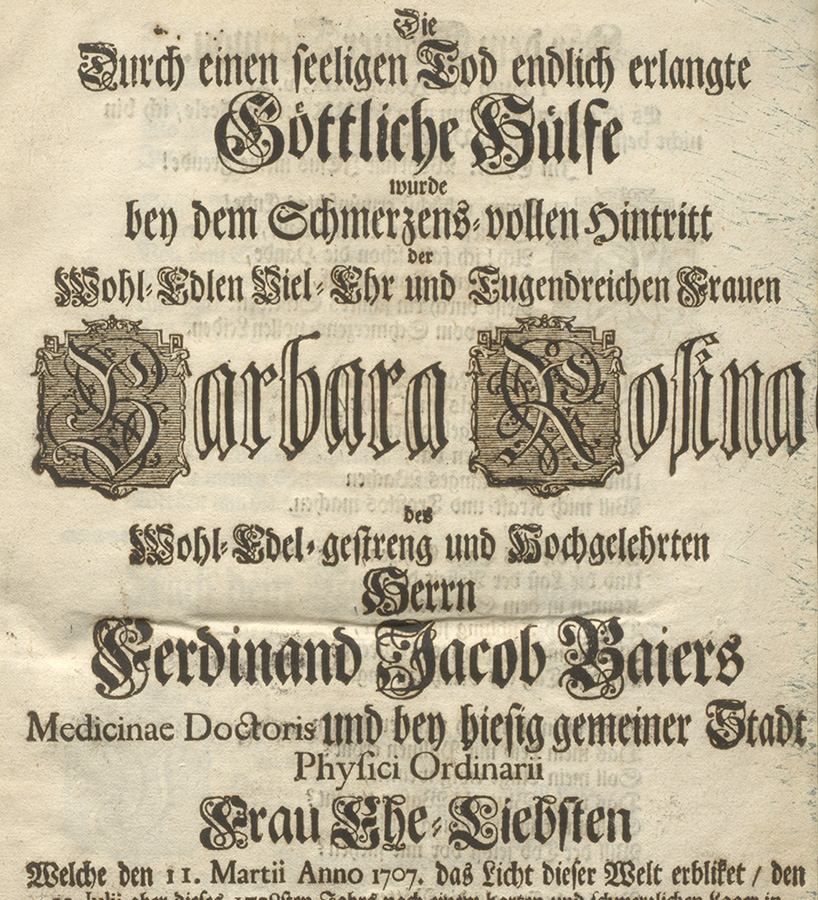 Die
Durch einen seeligen Tod endlich erlangte
Göttliche Hülfe
wurde
bey dem Schmerzens-vollen Hintritt
der
Wohl-Edlen Viel-Ehr und Tugendreichen Frauen
Barbara Rosina
des
Wohl-Edel-gestreng und Hochgelehrten
Herrn
Ferdinand Jacob Baiers
Medicinae Doctoris und bey hiesig gemeiner Stadt
Physici Ordinarii
Frau Ehe-Liebsten
Welche den 11. Martii Anno 1707. das Licht dieser Welt erbliket / den
Julii aber dieses Jahrs nach einem harten und schmertzlichen Lager in